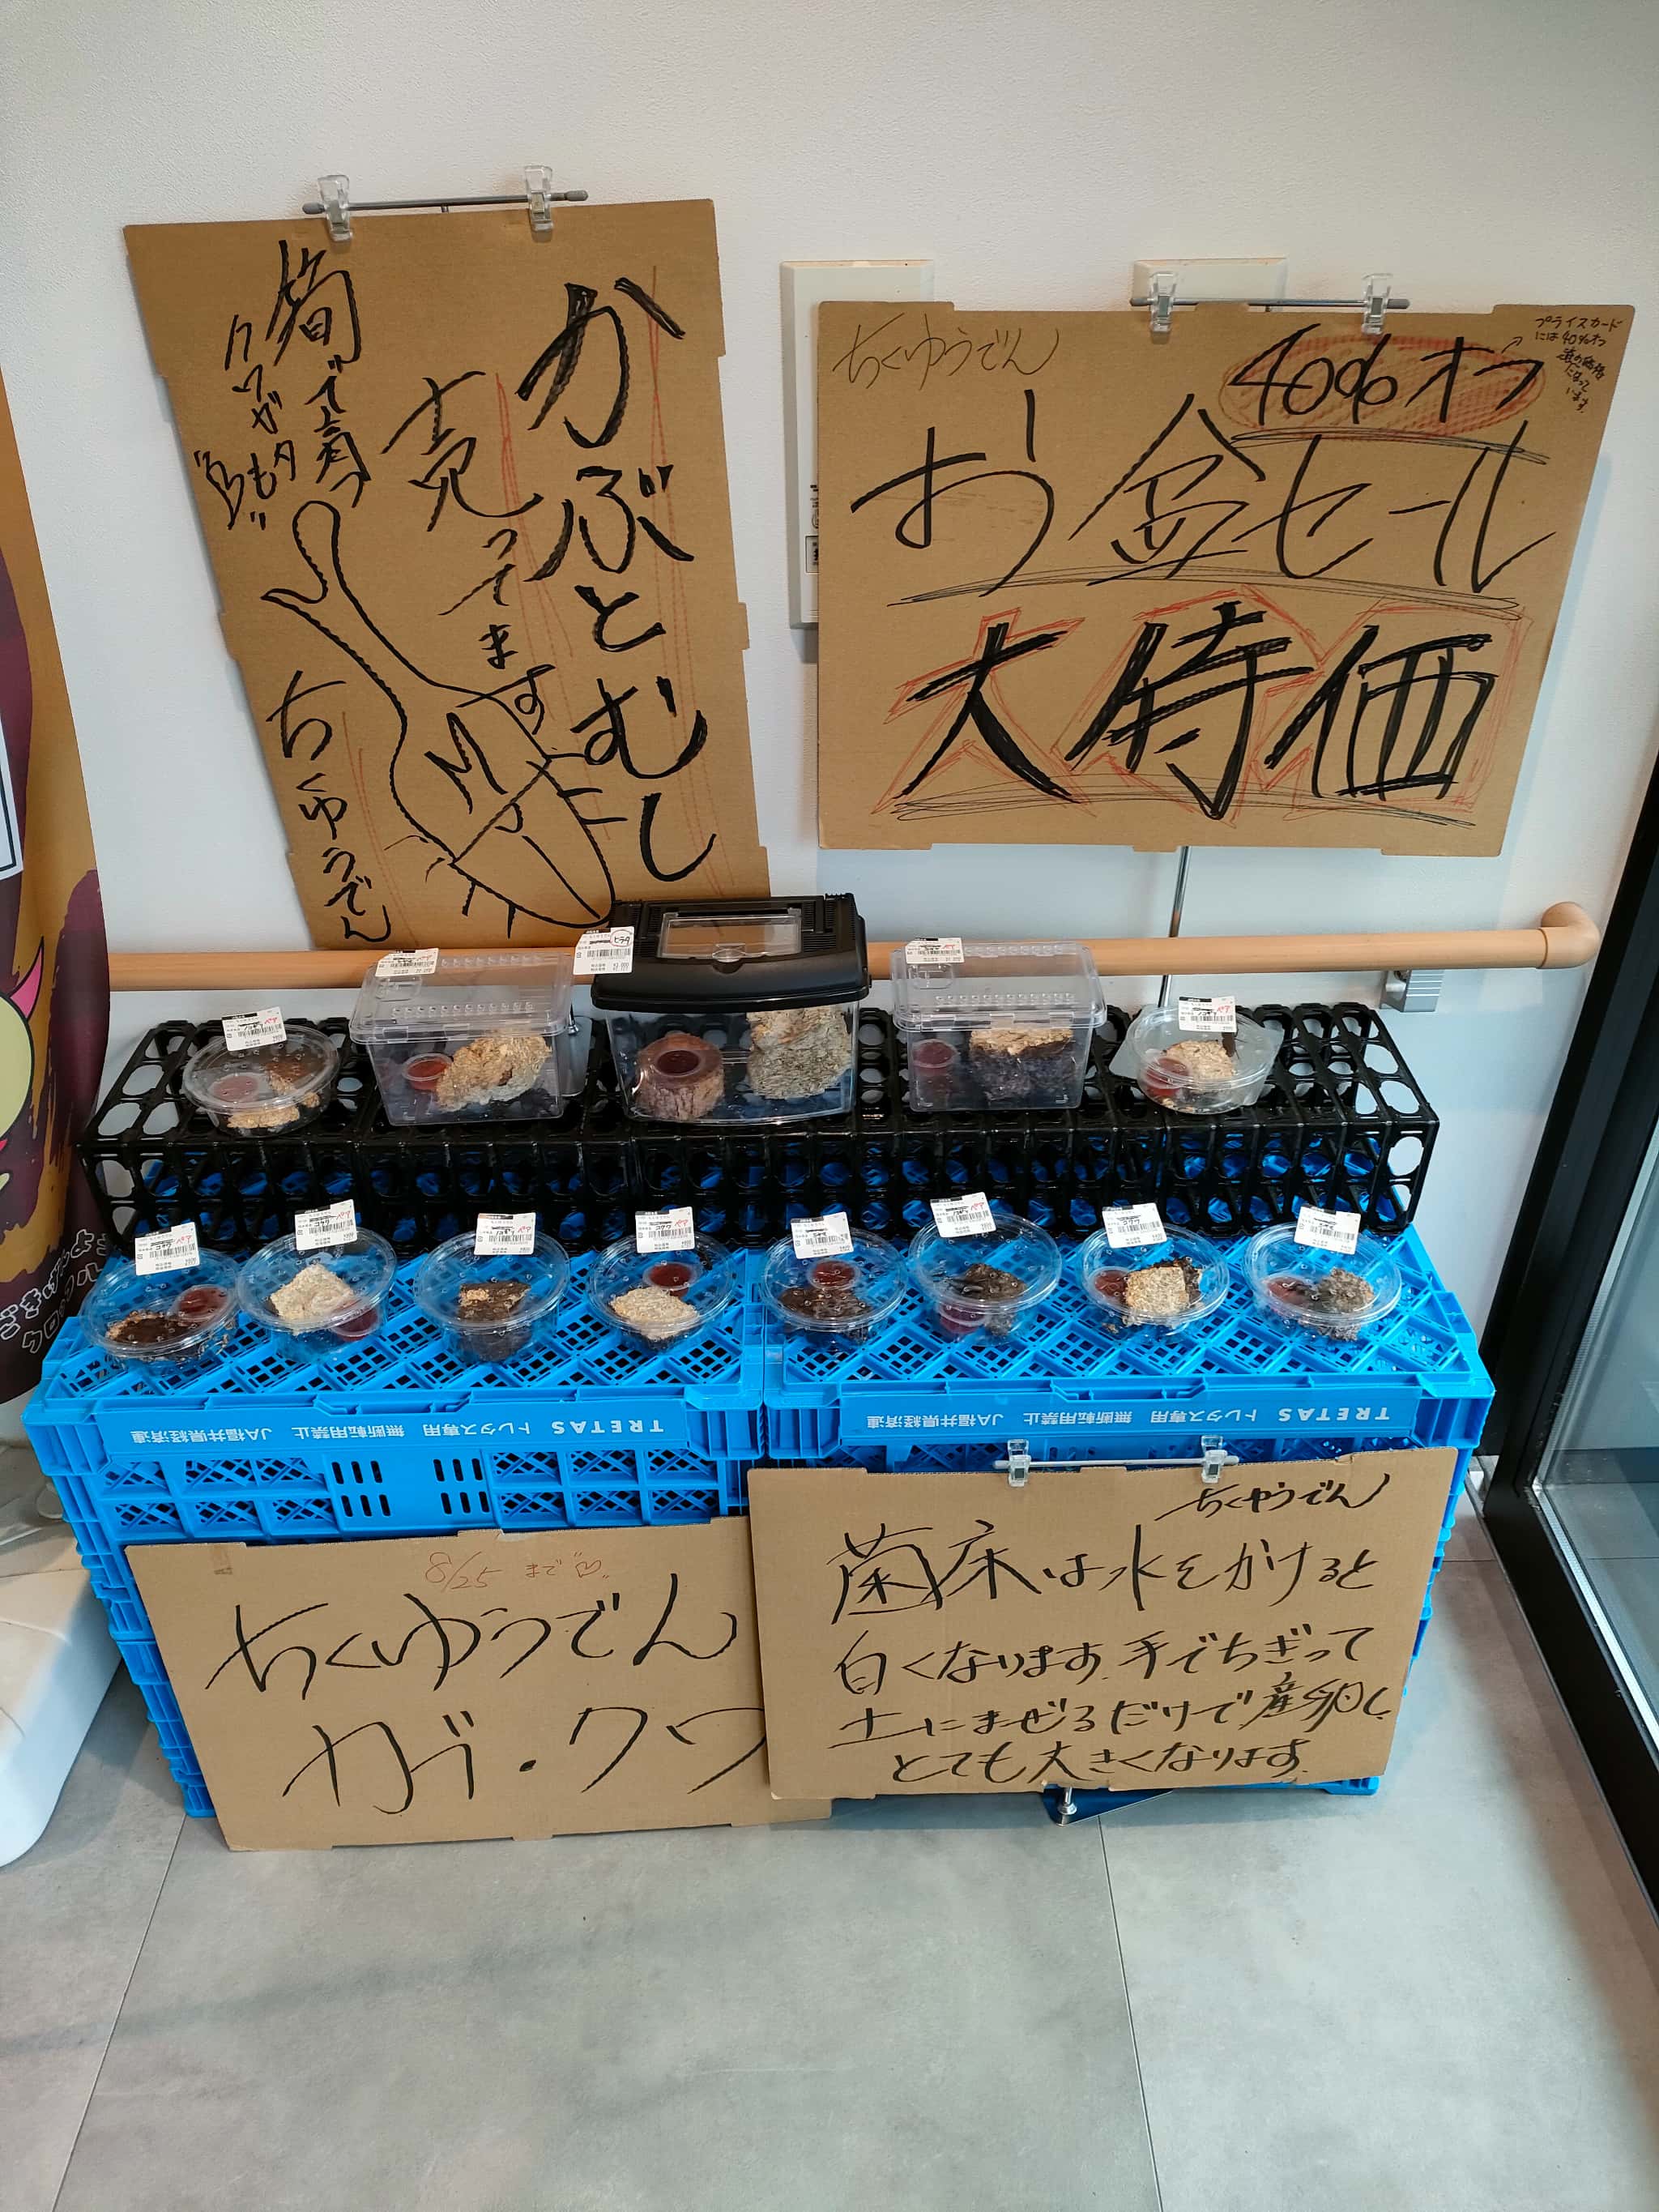 かぶとむし
売ってます
筍で育つ
クワガタも
ちくゆうでん
ちくゆうでん
40%オフ
プライスカード
には40%オフ
後の価格
になって
います。
お盆セール
大特価
ヒラタ
ペア
ペア
コクワ
ペア
コクワ
ペア
コクワ
コクワ
TRETAS トレタス専用 無断転用禁止 JA福井県経済連
TRETAS トレタス専用 無断転用禁止 JA福井県経済連
8/25まで
ちくゆうでん
カブ・クワ
ちくゆうでん
菌床は水をかけると
白くなります。手でちぎって
土にまぜるだけで産卵し、
とても大きくなります。